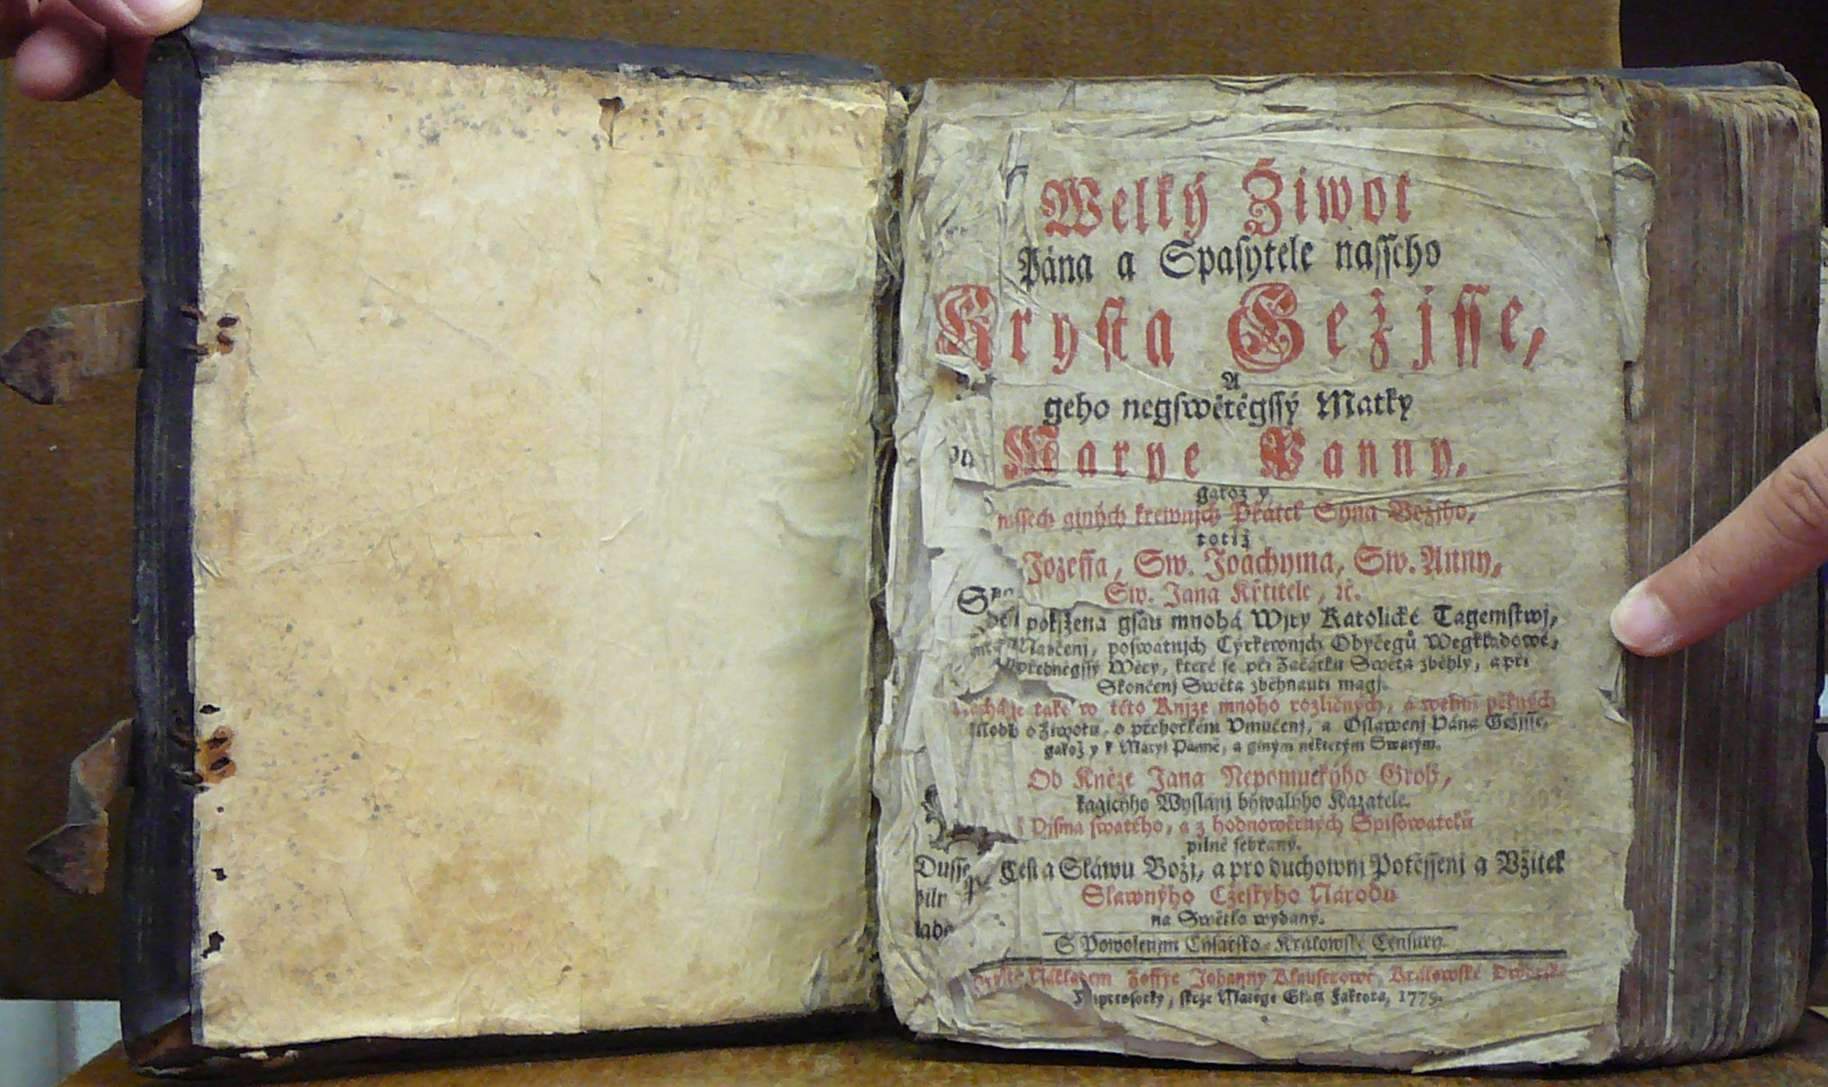 Welký Žiwot
Pána a Spasytele nasseho
Krysta Gežjsse,
A
geho negswětěgssý Matky
Marye Panny,
gakož y
wssech giných krewnjch Přátel Syna Božjho,
totiž
Jozeffa, Sw. Joachyma, Sw. Anny,
Sw. Jana Křtitele, ꝛc.
položena gsau mnohá Wjry Katolické Tagemstwj,
Naučenj, poswatných Cýrkewnjch Obyčegů Wegkladowé,
Wěcy, které se při Začátku Swěta zběhly, a při
Skončenj Swěta zběhnauti magj.
také w této Knjze mnoho rozličných, a welmi pěkných
o Žiwotu, o přehořkém Vmučenj, a Oslawenj Pána Gežjsse,
gakož y k Maryi Panně, a giným některým Swatým.
Od Kněze Jana Nepomuckýho
kagicýho Wyslánj býwalýho Kazatele.
Pjsma swatého, a z hodnowěrných Spisowatelů
pilně sebraný.
Čest a Sláwu Božj, a pro duchownj Potěssenj a Vžitek
Slawnýho Cžeského Národu
na Swětlo wydaný.
S Powolenjm Cýsařsko-Králowské Censury.
Nákladem Žoffye Johanny Klauserowé, Králowské
skrze Matěge Faktora, 1779.